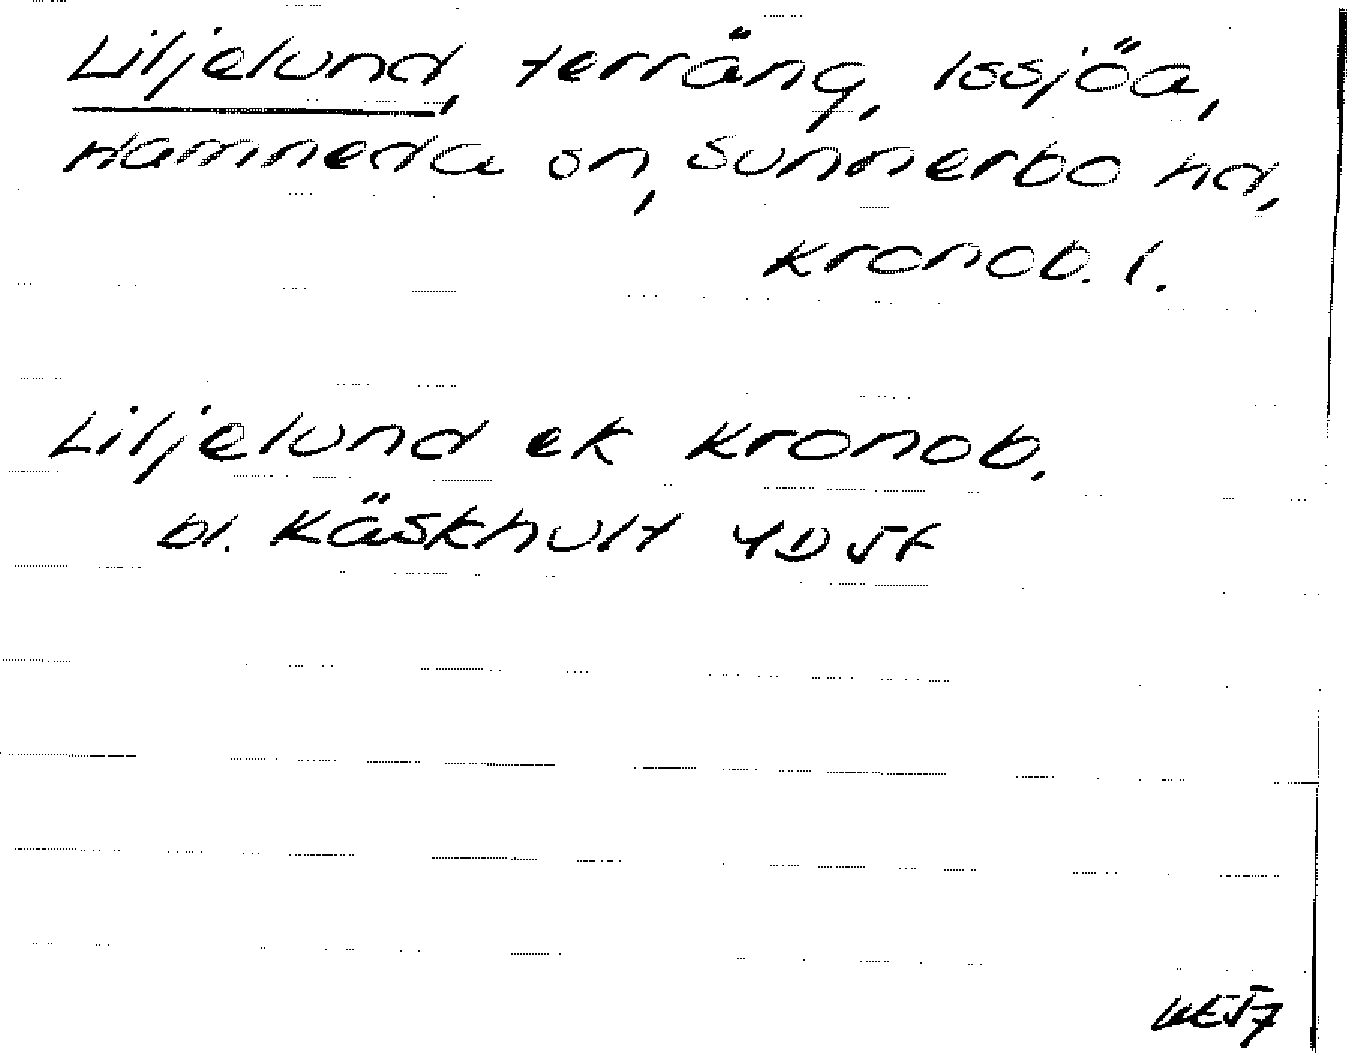 Liljelund, terräng, Issjöa,
Hamneda sn, Sunnerbo hd,
Kronob. l.
Liljelund ek Kronob.
bl. Käskhult 4D